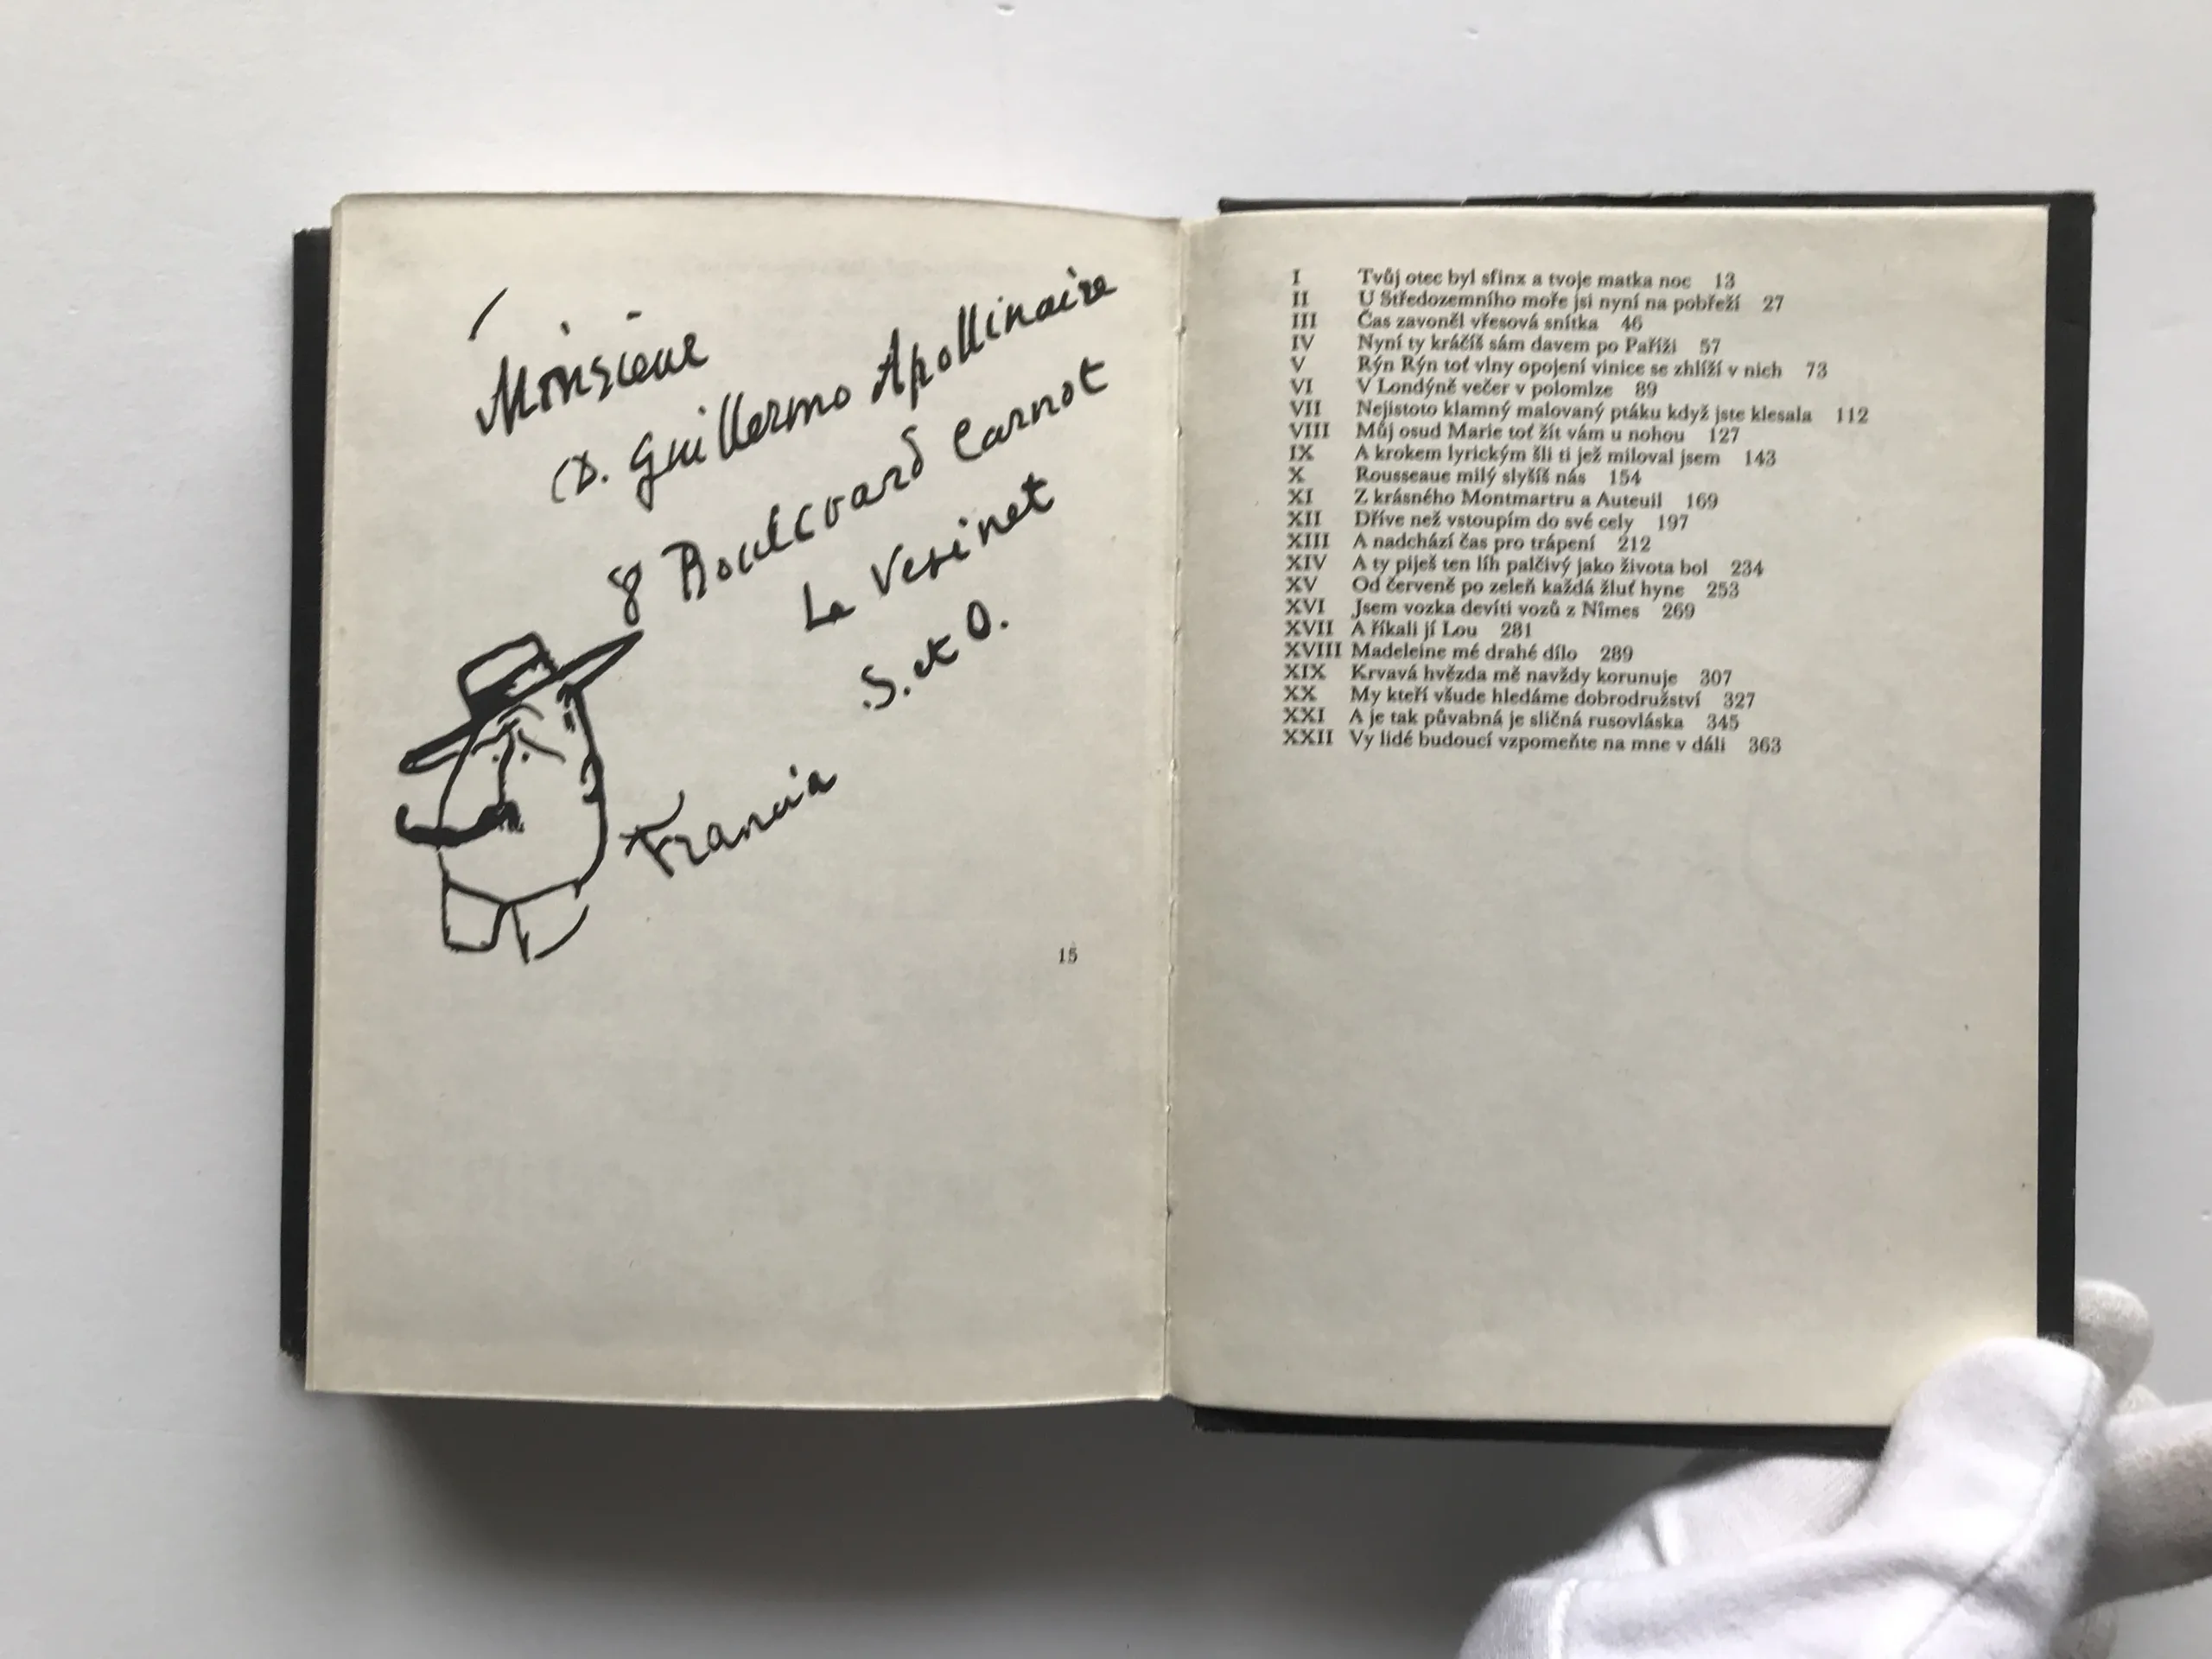 Monsieur
D. Guillermo Apollinaire
8 Boulevard Carnot
Le Vesinet
S. et O.
Francia
15
I Tvůj otec byl sfinx a tvoje matka noc 13
II U Středozemního moře jsi nyní na pobřeží 27
III Čas zavoněl vřesová snítka 46
IV Nyní ty kráčíš sám davem po Paříži 57
V Rýn Rýn toť vlny opojení vinice se zhlíží v nich 73
VI V Londýně večer v polomlze 89
VII Nejistoto klamný malovaný ptáku když jste klesala 112
VIII Můj osud Marie toť žít vám u nohou 127
IX A krokem lyrickým šli ti jež miloval jsem 143
X Rousseaue milý slyšíš nás 154
XI Z krásného Montmartru a Auteuil 169
XII Dříve než vstoupím do své cely 197
XIII A nadchází čas pro trápení 212
XIV A ty piješ ten líh palčivý jako života bol 234
XV Od červeně po zeleň každá žluť hyne 253
XVI Jsem vozka devíti vozů z Nîmes 269
XVII A říkali jí Lou 281
XVIII Madeleine mé drahé dílo 289
XIX Krvavá hvězda mě navždy korunuje 307
XX My kteří všude hledáme dobrodružství 327
XXI A je tak půvabná je sličná rusovláska 345
XXII Vy lidé budoucí vzpomeňte na mne v dáli 363